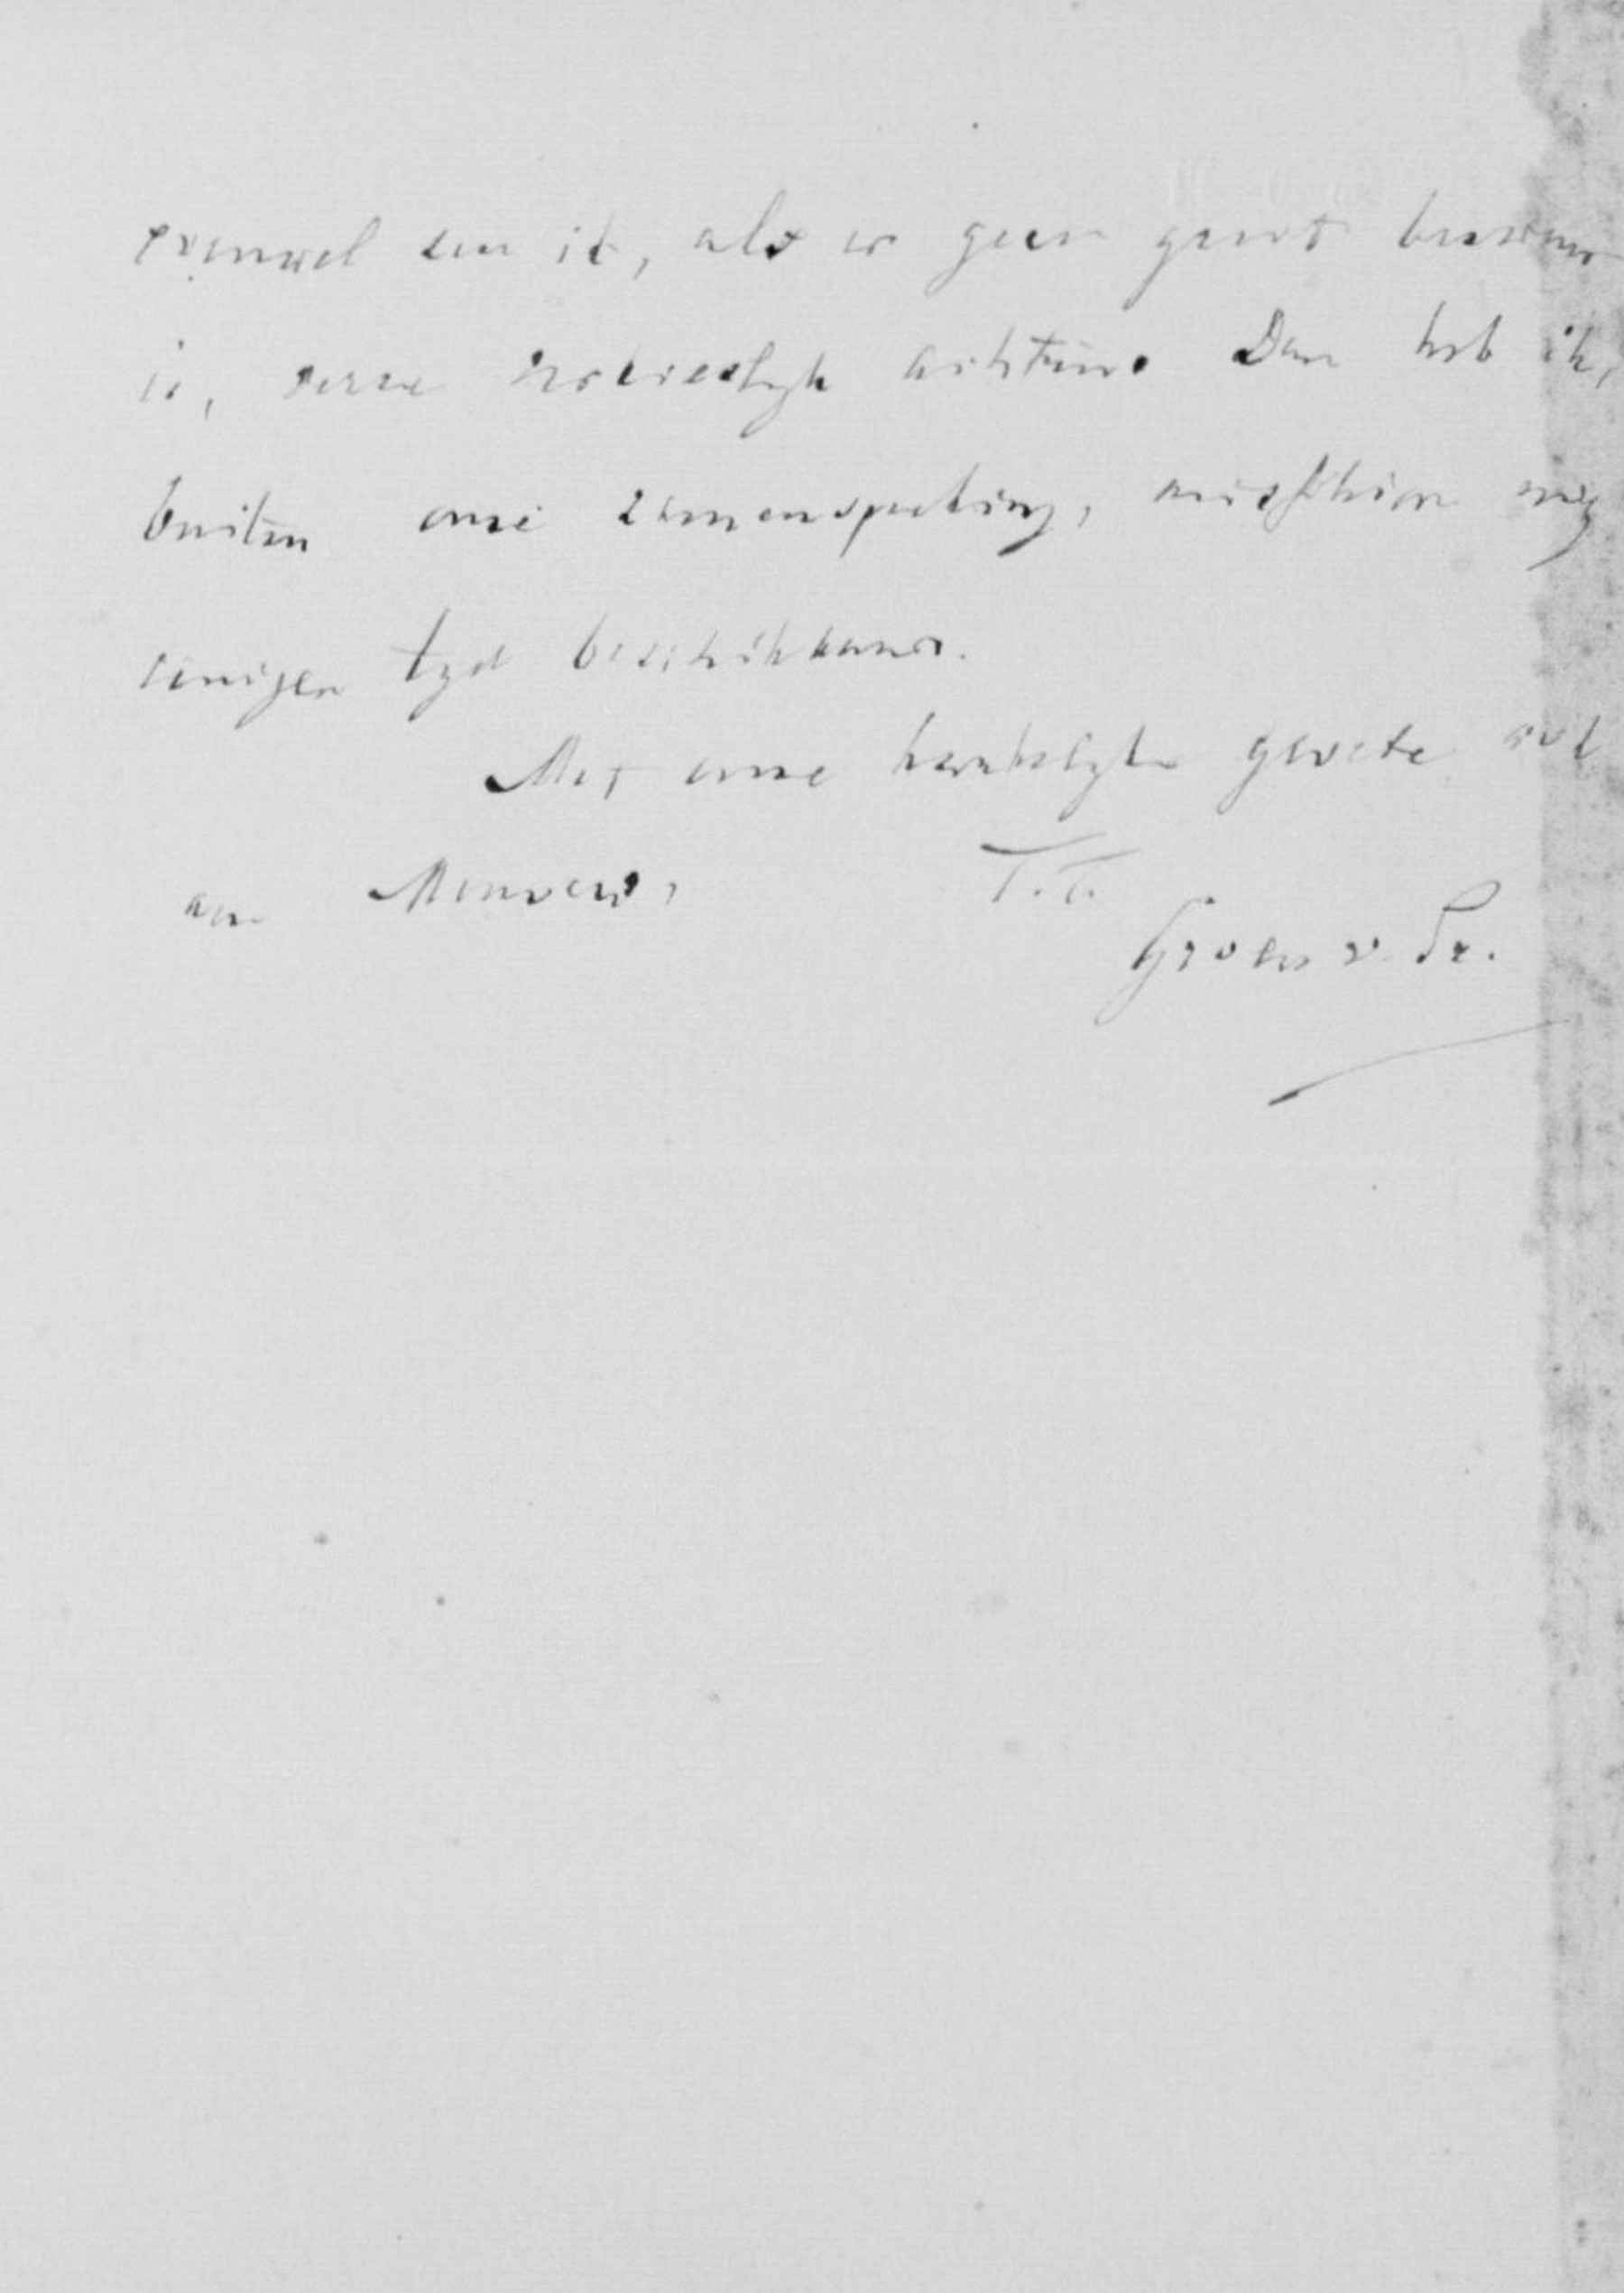 evenwel zou ik, als er geen groot bezwaar
is, verre verkieslijk achten. Dan heb ik,
buiten onze zamenspreking, misschien nog
eenigen tyd beschikbaar.
Met onze hartelijke groete ook
aan Mevrouw,
T.T.
Groen v. Pr.